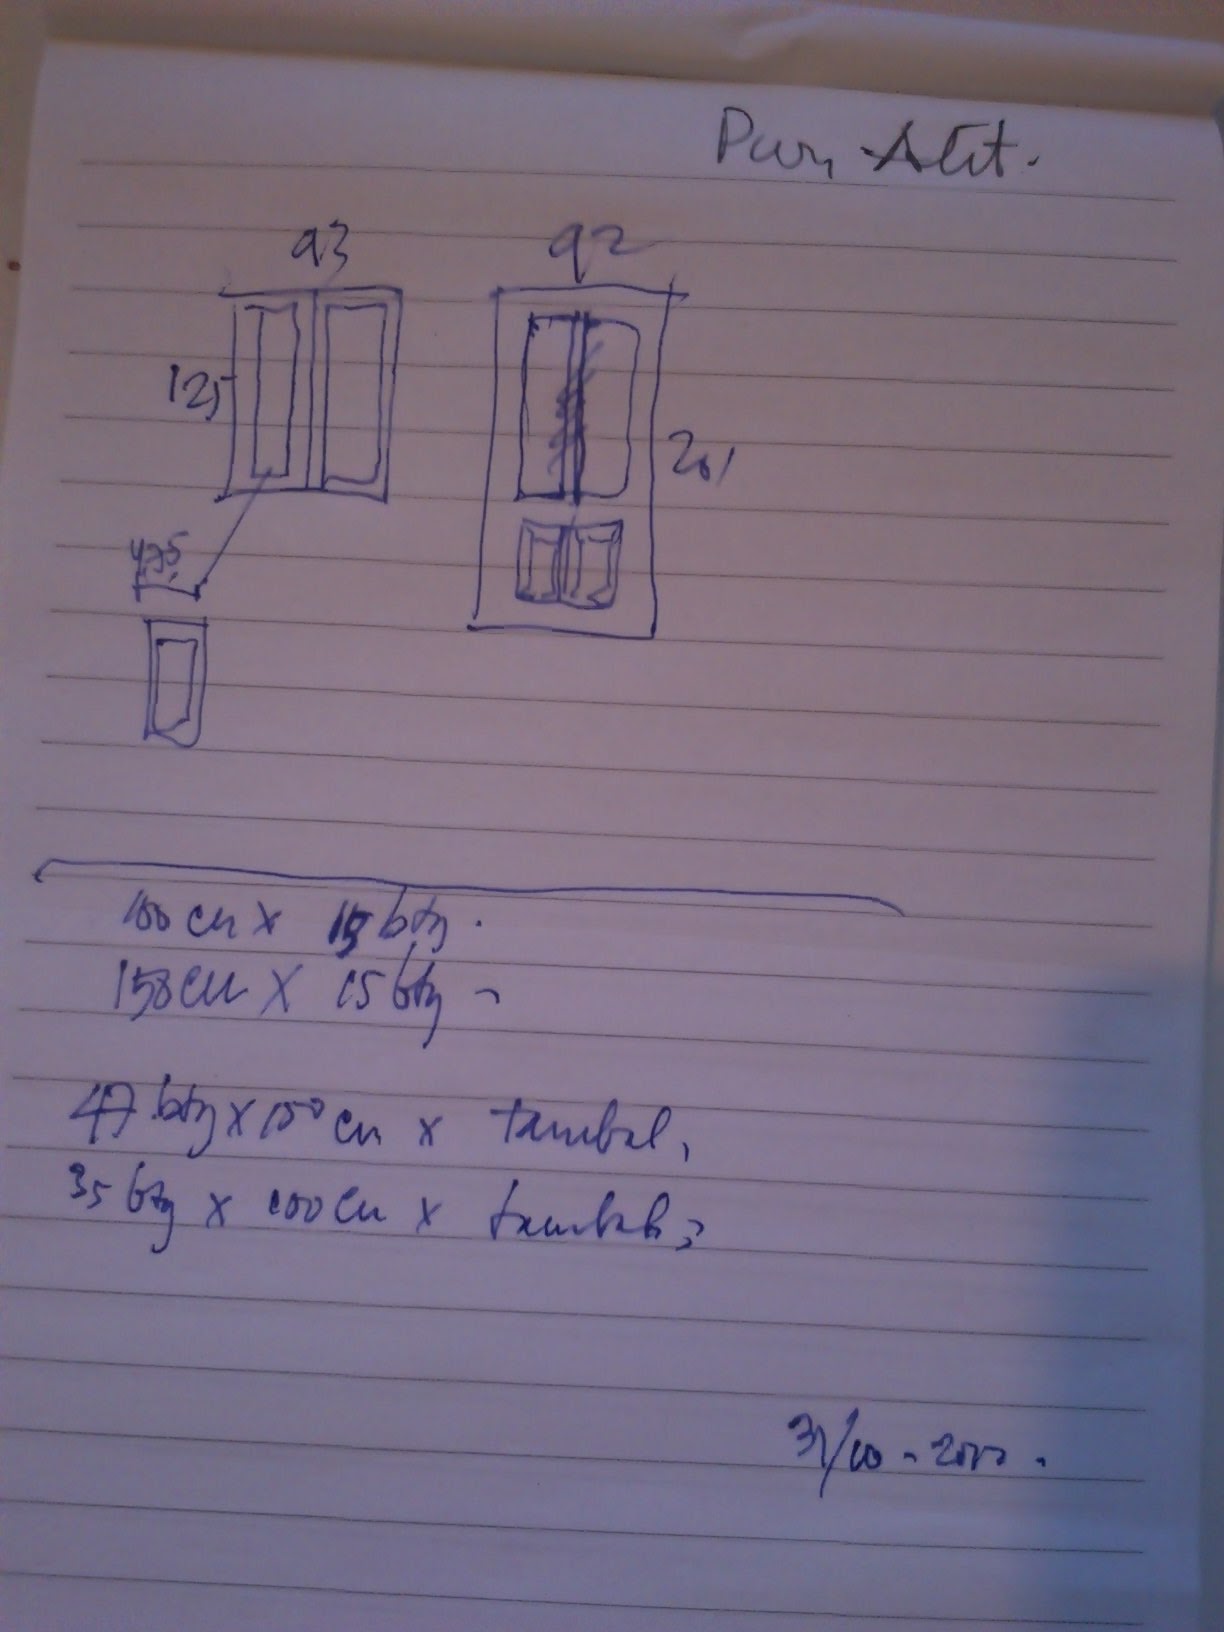 Alit.
93
92
125
201
47,5
100 cm x 15 btg.
158 cm x 15 btg
47 btg x 150 cm x tambal,
35 btg x 100 cm x tambal,